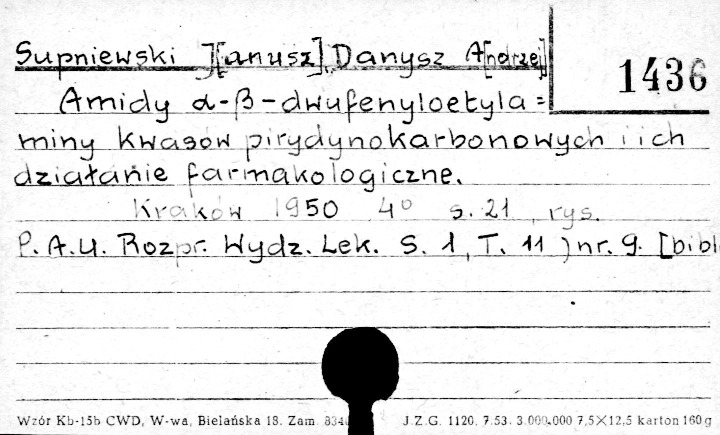 Supniewski J[anusz], Danysz A[ndrzej]
1436
Amidy α-β-dwufenyloetyla=
miny kwasów pirydynokarbonowych i ich
działanie farmakologiczne.
Kraków 1950 4° s. 21, rys.
P.A.U. Rozpr. Wydz. Lek. S. 1, T. 11) nr. 9. [bibl
Wzór Kb-15b CWD, W-wa, Bielańska 18. Zam. J.Z.G. 1120. 7.53. 3.000.000 7,5×12,5 karton 160 g